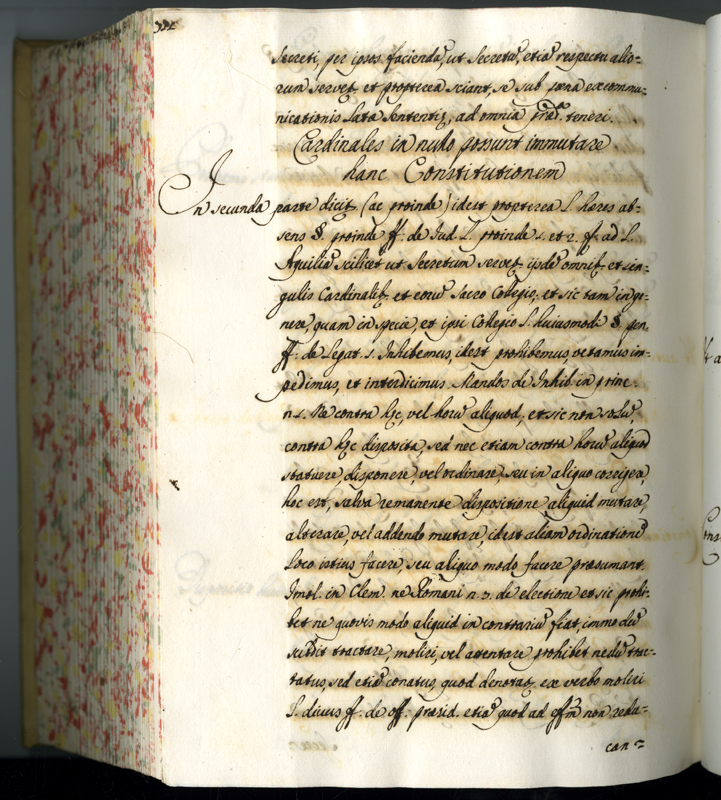 secreti, per ipsos faciendũ, ut secretũ, etiã respectu alio-
rum servet, et propterea sciant se sub pœna excommu-
nicationis latæ sententiæ, ad omnia præd. teneri.
Cardinales in nullo possunt immutare
hanc Constitutionem
In secunda parte dicit (ac proinde) idest propterea L. hæres ab-
sens §. proinde ff. de Jud. L. proinde 1. et 2. ff. ad L.
Aquiliã scilicet ut secretum servet ipsdẽ omnibꝫ et sin-
gulis Cardinalibꝫ et eorũ Sacro Collegio, et sic tam in ge-
nere, quam in specie, et ipsi Collegio L. huiusmodi §. pen.
ff. de legat. 1. Inhibemus, idest prohibemus, vetamus im-
pedimus, et interdicimus. Mandos. de Inhib. in princ.
n. 1. Ne contra hæc, vel horũ aliquod, et sic non solũ
contra hæc disposita, sed nec etiam contra horũ aliquod
statuere, disponere, vel ordinare, seu in aliquo corrigere,
hoc est, salva remanente dispositione aliquid mutare,
alterare, vel addendo mutare, idest aliam ordinationẽ
loco istius facere, seu aliquo modo facere præsumant.
Imol. in Clem. ne Romani n. 3. de electione et sic prohi-
bet ne quovis modo aliquid in contrariũ fiat, immo dũ
tractare, moliri, vel attentare prohibet nedũ trac-
tatus, sed etiã conatus, quod denotat ex verbo moliri
L. divus ff. de off. præsid. etiã quod ad effm̃ non redu-
can-